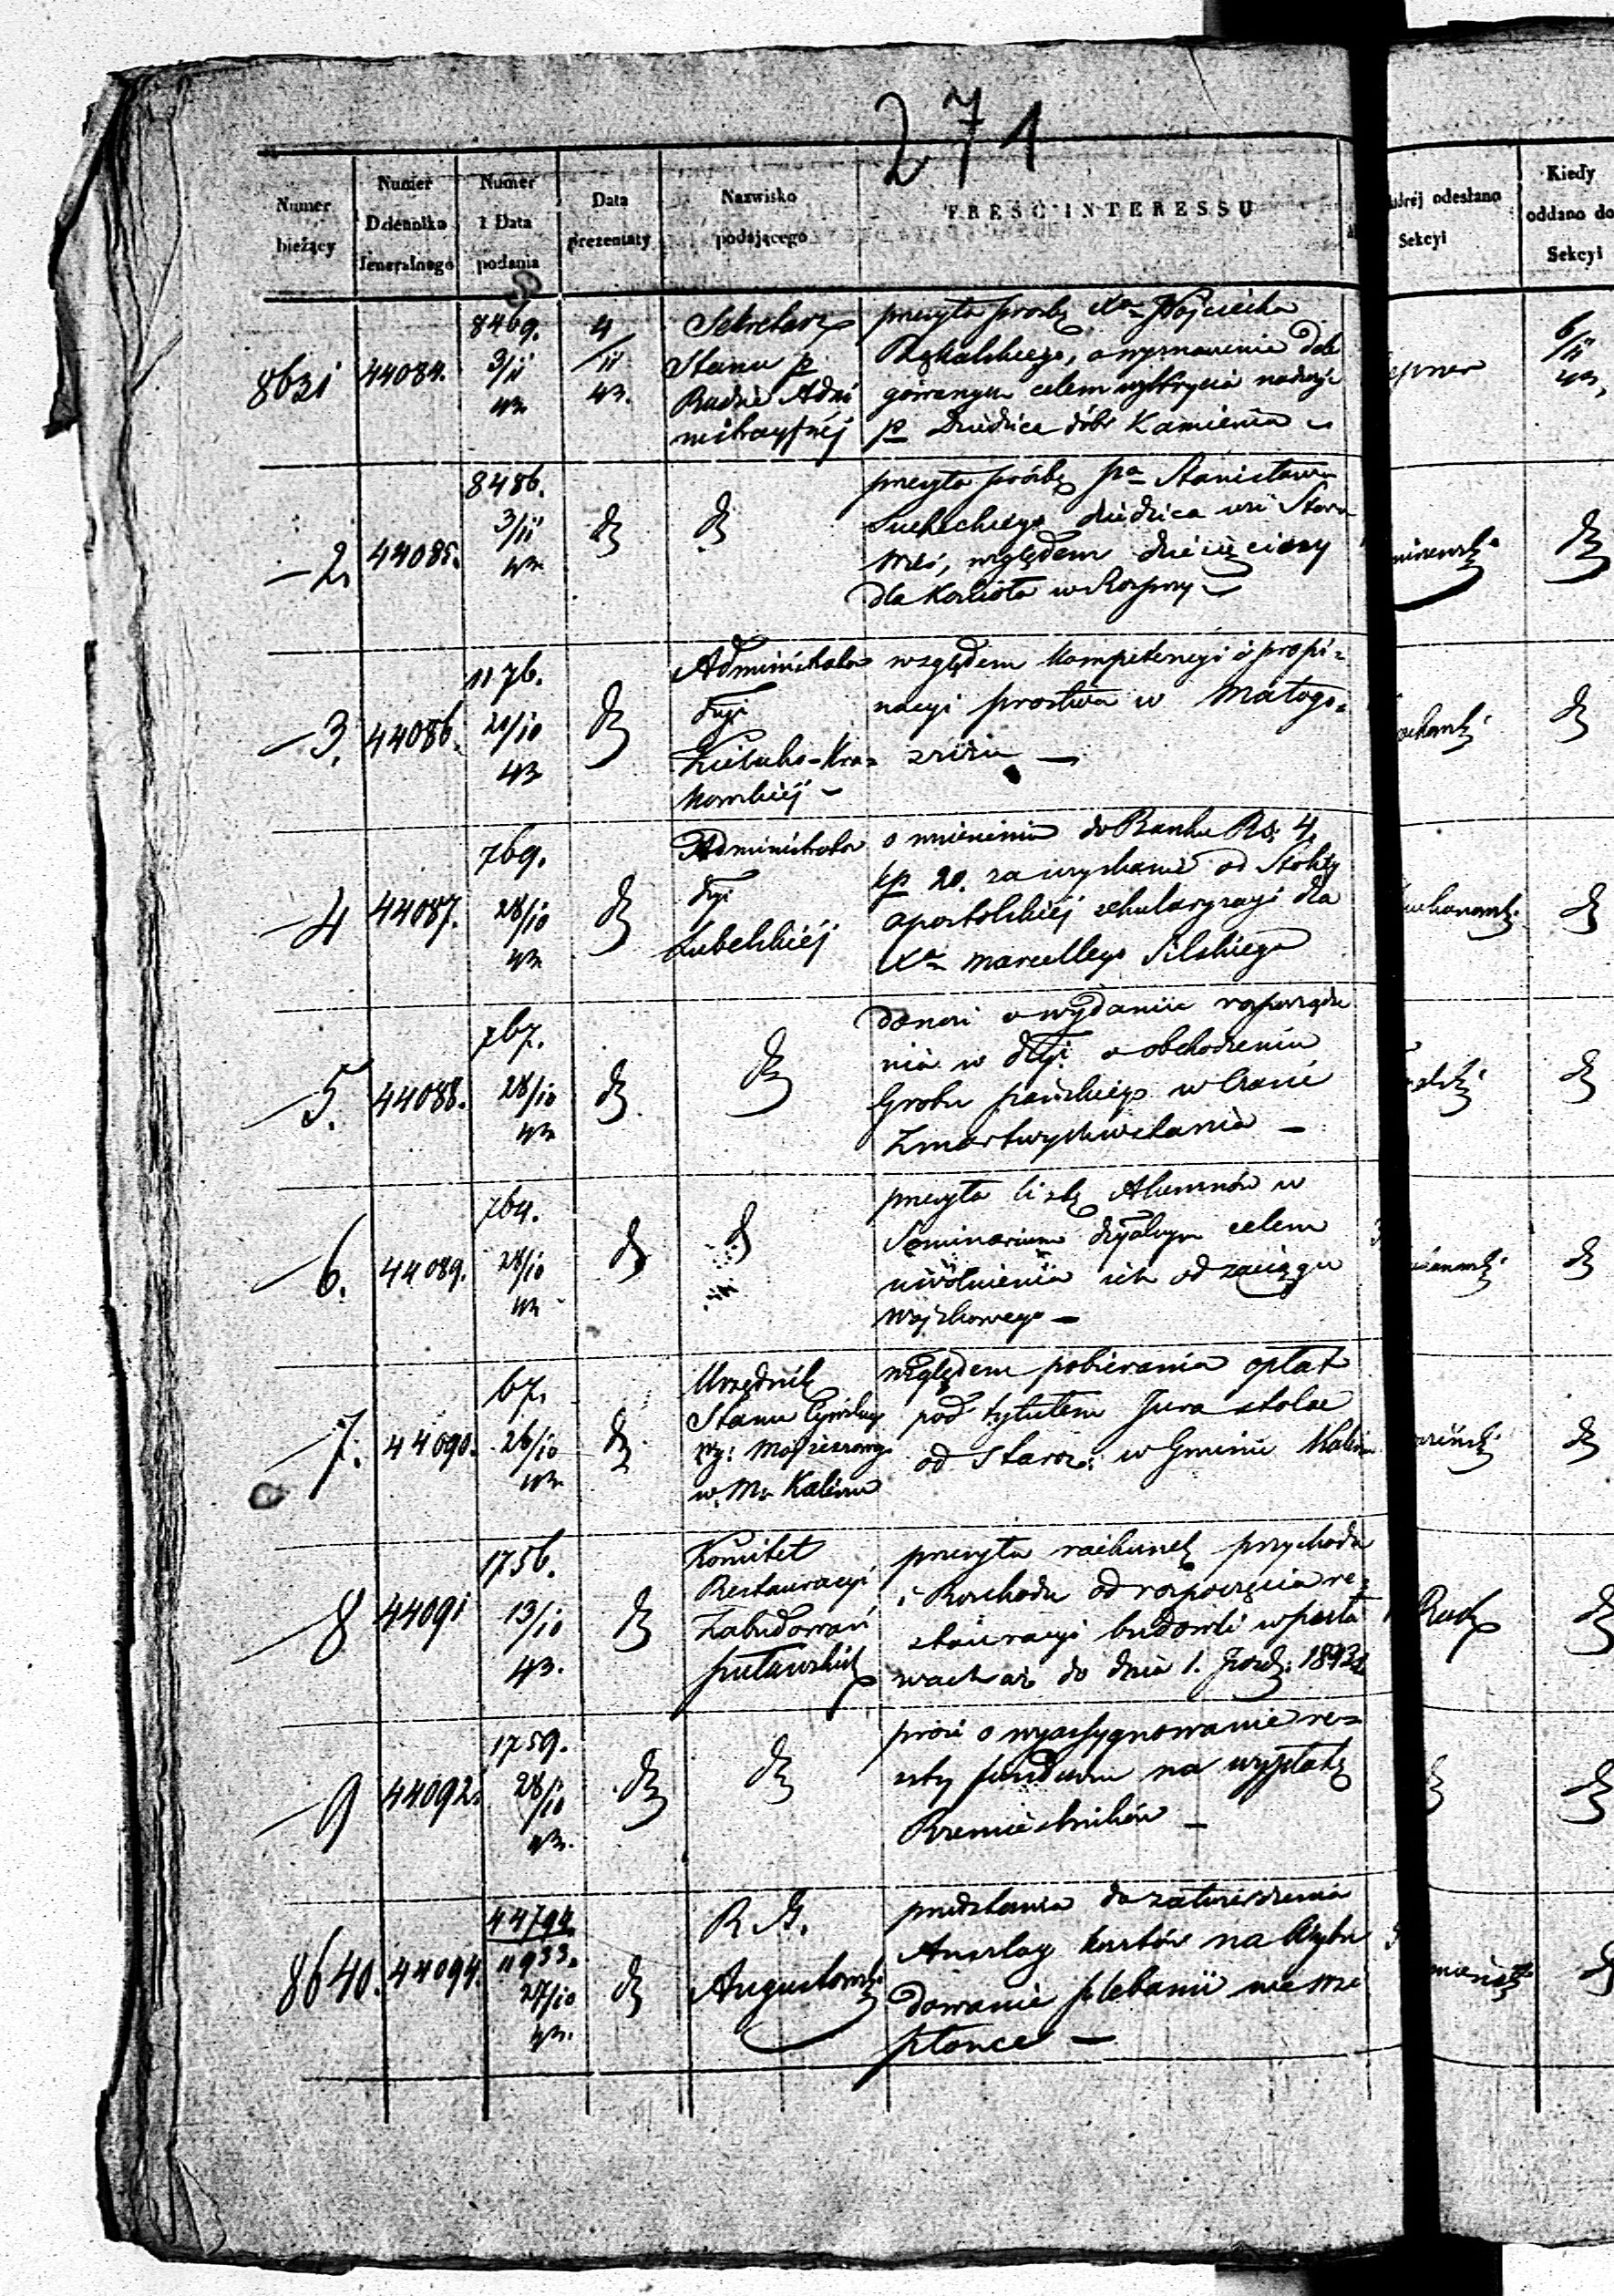 271
Numer bieżący
Numer Dziennika Jeneralnego
Numer i Data podania
Data prezentaty
Nazwisko podającego
TREŚĆ INTERESSU
odesłano Sekcyi
Kiedy oddano do Sekcyi
8631 44084. 8469. 3/11 43 4/11 43.
Sekretarz
Stanu p
Radzie Admi
nistracyjnéj
przesyła prośbę Xa Wojciecha
celem nadużyć
p Dziedzica dóbr Kamienia
6/11 43
2. 44085. 8486. 3/11 43 dt dt
przesyła prośbę pa Stanisława
Suchockiego dziedzica wsi Stara
Wieś, względem dziesięciny
dla Kościoła w Rozprzy
dt
3. 44086. 1176. 20/10 43 dt
Administrator
Dyi
Kielecko-Kra=
kowskiéj
względem kompetencyi i propi=
nacyi probostwa w Małogo=
dt
4 44087. 769. 28/10 43 dt
Administrator
Dyi
Lubelskiéj
o wniesieniu do Banku Rs. 4
kp 20. za uzyskanie od Stolicy
apostolskiéj sekularyzacyi dla
Xa Marcellego Silskiego
dt
5. 44088. 767. 28/10 43 dt dt
donosi o wydaniu rozporządze
nia w Dyi o obchodzeniu
Grobu pańskiego w czasie
Zmartwychwstania
dt
6. 44089. 764. 28/10 43 dt dt
przesyła listę Alumnów w
Seminarium dyalnym celem
uwolnienia ich od zaciągu
wojskowego
dt
7. 44090. 67. 26/10 43 dt
Urzędnik
Stanu Cywilnego
wy: Mojżeszowego
w M. Kaliszu
względem pobierania opłat
pod tytułem Jura stolae
od Staroz: w Gminie Kalisz
dt
8 44091 1756. 13/10 43. dt
Komitet
Restauracyi
Zabudowań
puławskich
przesyła rachunek przychodu
i Rozchodu od rozpoczęcia re=
stauracyi budowli w puła
wach aż do dnia 1. Paźdz: 1843
dt
9 44092. 1759. 28/10 43. dt dt
prosi o wyassygnowanie re=
szty funduszu na wypłatę
Rzemieślników
dt
8640. 44094. 44794. 11933. 27/10 43. dt
R. G.
Augustowski
przedstawia do zatwierdzenia
Anszlag kosztów na Wybu
dowanie plebanii we wsi
Płonce
dt